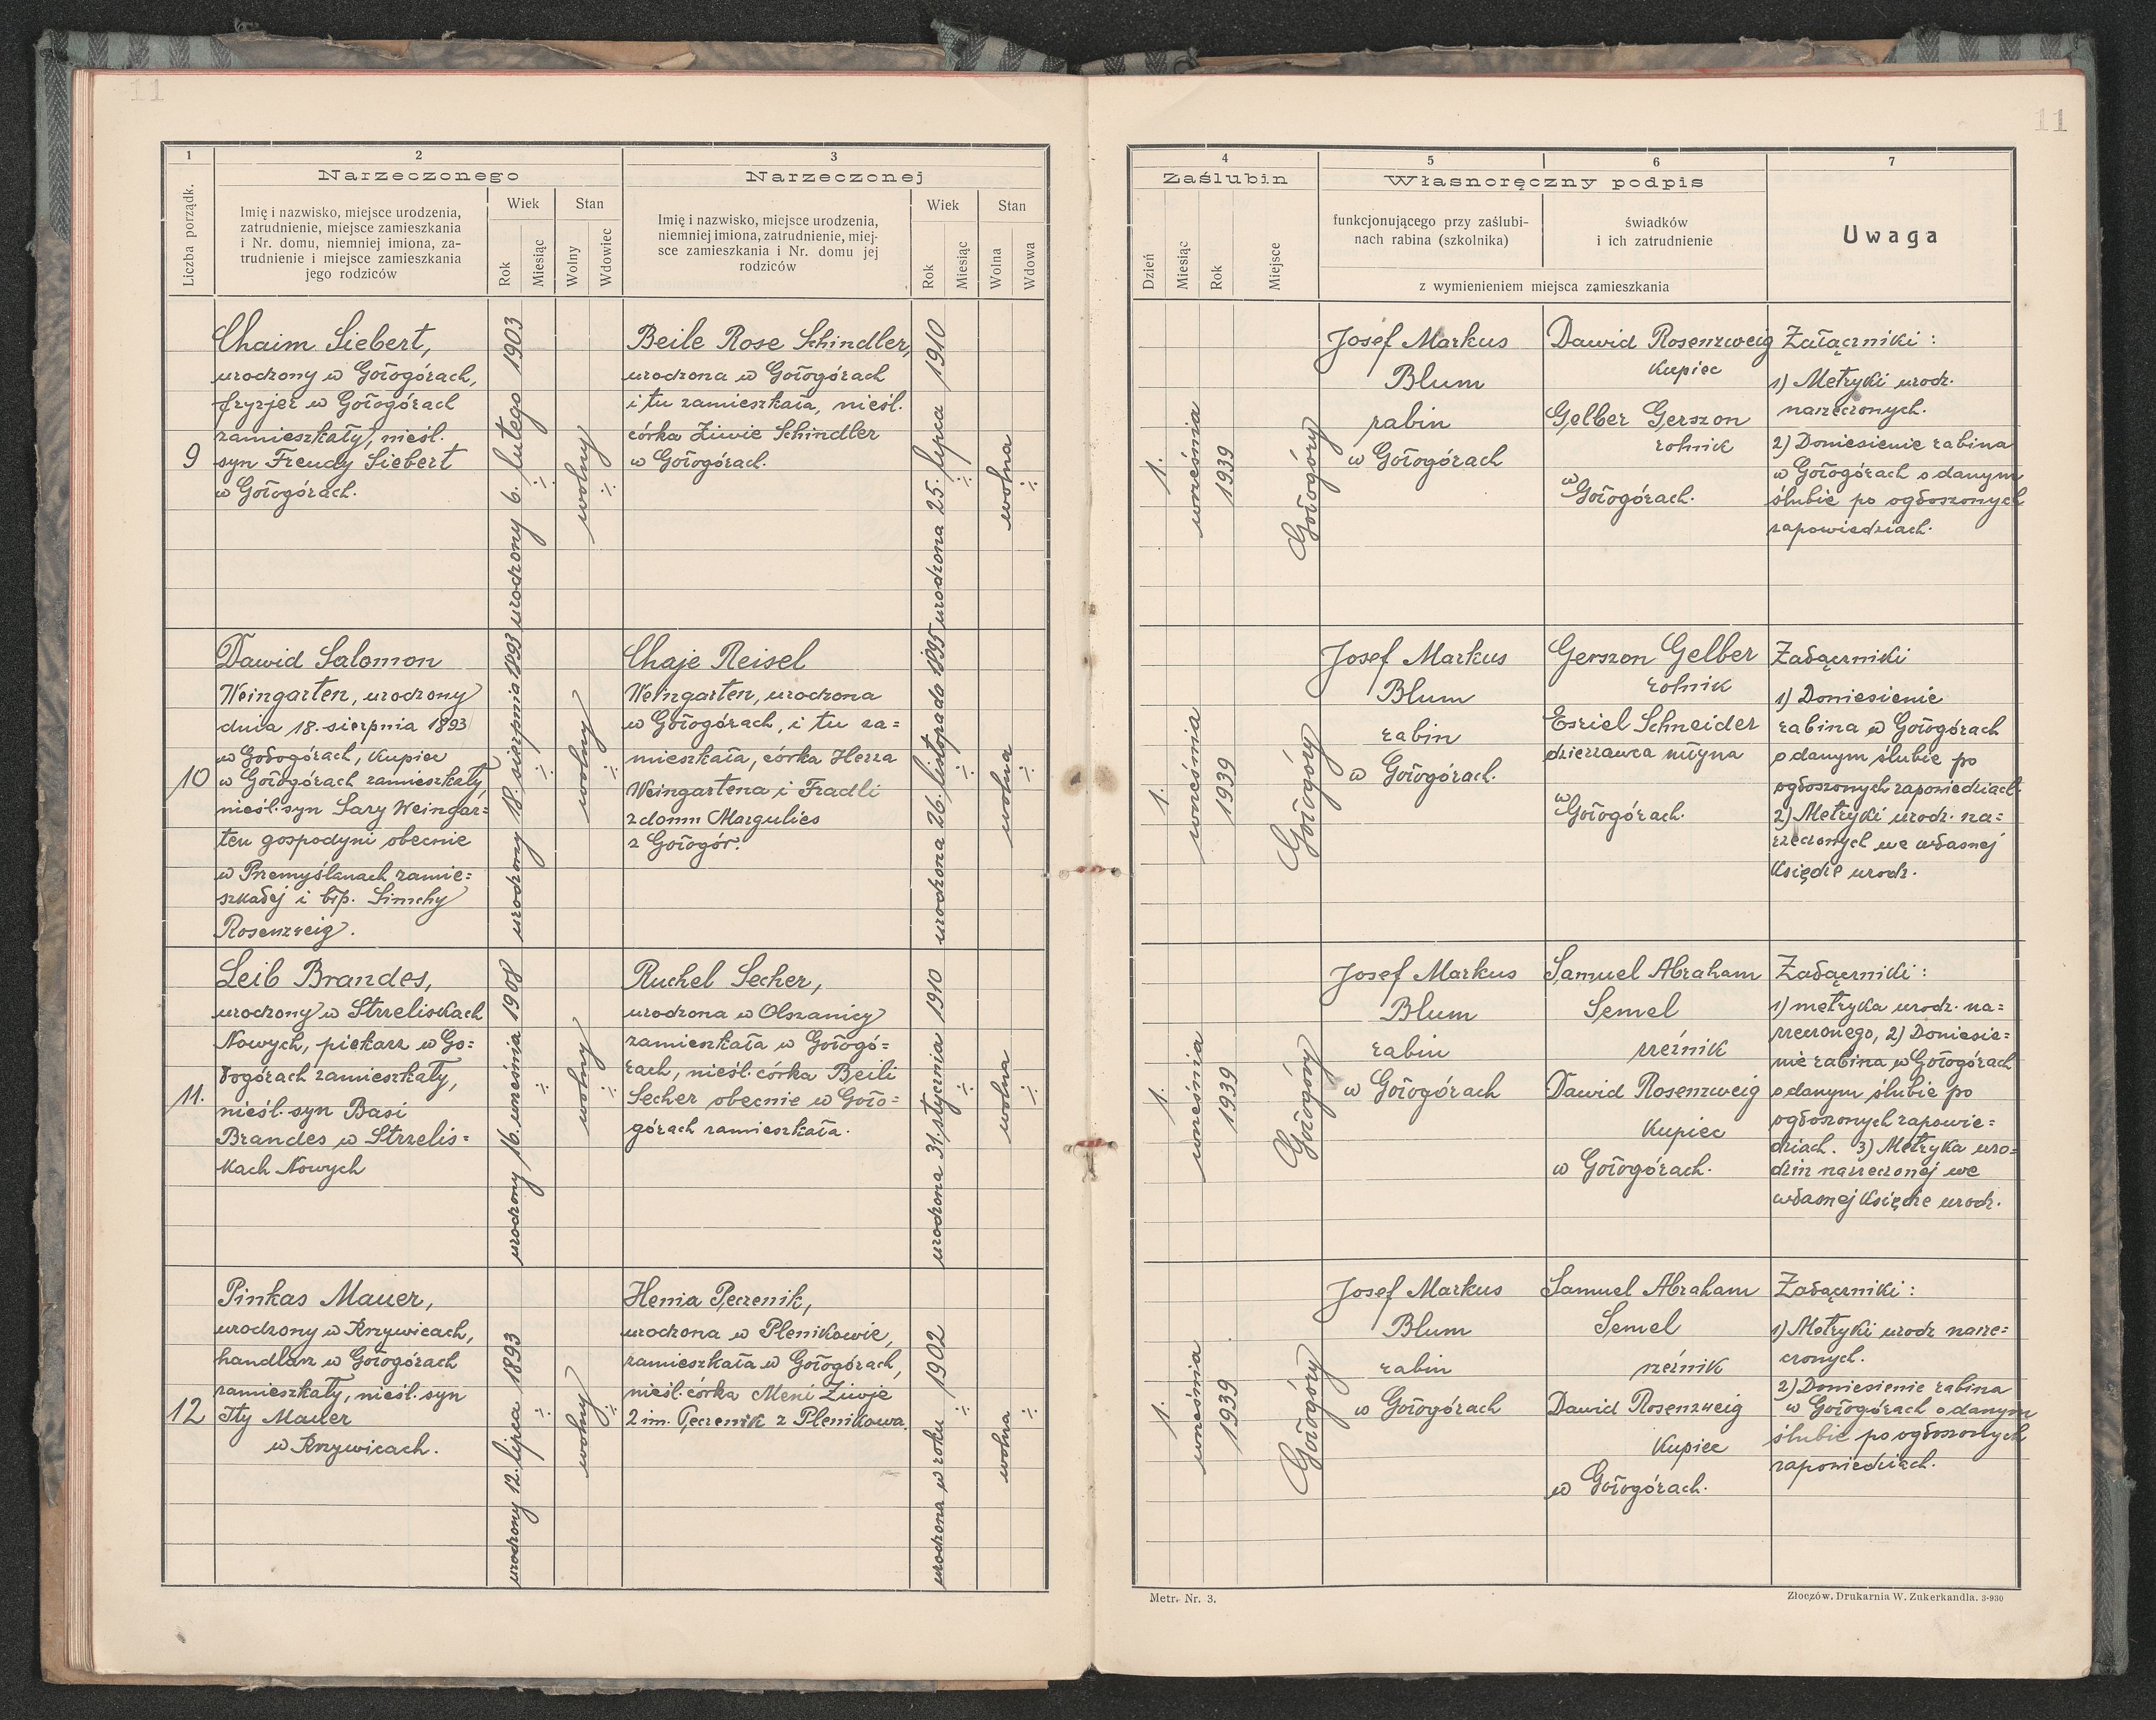 11
11
1
2
3
Narzeczonego
Narzeczonej
Liczba porządk.
Imię i nazwisko, miejsce urodzenia,
zatrudnienie, miejsce zamieszkania
i Nr. domu, niemniej imiona, za-
trudnienie i miejsce zamieszkania
jego rodziców
Wiek
Rok
Miesiąc
Stan
Wolny
Wdowiec
Imię i nazwisko, miejsce urodzenia,
niemniej imiona, zatrudnienie, miej-
sce zamieszkania i Nr. domu jej
rodziców
Wiek
Rok
Miesiąc
Stan
Wolna
Wdowa
4
5
6
7
Zaślubin
Własnoręczny podpis
Dzień
Miesiąc
Rok
Miejsce
funkcjonującego przy zaślubi-
nach rabina (szkolnika)
świadków
i ich zatrudnienie
z wymienieniem miejsca zamieszkania
Uwaga
9
Chaim Siebert,
urodzony w Gołogórach,
fryzjer w Gołogórach
zamieszkały, nieśl.
syn Freudy Siebert
w Gołogórach.
urodzony 6. lutego 1903
wolny
Beile Rose Schindler,
urodzona w Gołogórach
i tu zamieszkała, nieśl.
córka Ziwie Schindler
w Gołogórach.
urodzona 25. lipca 1910
wolna
1.
września
1939
Gołogóry
Josef Markus
Blum
rabin
w Gołogórach
Dawid Rosenzweig
Kupiec
Gelber Gerszon
rolnik
w
Gołogórach.
Załączniki :
1) Metryki urodz.
narzeczonych.
2) Doniesienie rabina
w Gołogórach o danym
ślubie po ogłoszonych
zapowiedziach.
10
Dawid Salomon
Weingarten, urodzony
dnia 18. sierpnia 1893
w Gołogórach, Kupiec
w Gołogórach zamieszkały,
nieśl. syn Sary Weingar=
ten gospodyni obecnie
w Przemyślanach zamie=
szkałej i błp. Simchy
Rosenzweig.
urodzony 18. sierpnia 1893
wolny
Chaje Reisel
Weingarten, urodzona
w Gołogórach, i tu za=
mieszkała, córka Herza
Weingartena i Fradli
z domu Margulies
z Gołogór.
urodzona 26. listopada 1895
wolna
1.
września
1939
Gołogóry
Josef Markus
Blum
rabin
w Gołogórach.
Gerszon Gelber
rolnik
Esriel Schneider
dzierzawca młyna
w
Gołogórach.
Załączniki
1) Doniesienie
rabina w Gołogórach
o danym ślubie po
ogłoszonych zapowiedziach.
2) Metryki urodz. na=
rzeczonych we własnej
Księdze urodz.
11.
Leib Brandes,
urodzony w Strzeliskach
Nowych, piekarz w Go=
łogórach zamieszkały,
nieśl. syn Basi
Brandes w Strzelis=
kach Nowych
urodzony 16. września 1908
wolny
Ruchel Secher,
urodzona w Olszanicy
zamieszkała w Gołogó=
rach, nieśl. córka Beili
Secher obecnie w Goło=
górach zamieszkała.
urodzona 31. stycznia 1910
wolna
1.
września
1939
Gołogóry
Josef Markus
Blum
rabin
w Gołogórach
Samuel Abraham
Semel
rzeźnik
Dawid Rosenzweig
Kupiec
w Gołogórach.
Załączniki :
1) metryka urodz. na=
rzeczonego, 2) Doniesie=
nie rabina w Gołogórach
o danym ślubie po
ogłoszonych zapowie=
dziach. 3) Metryka uro=
dzin narzeczonej we
własnej Księdze urodz.
12
Pinkas Mauer,
urodzony w Krzywicach,
handlarz w Gołogórach
zamieszkały, nieśl. syn
Ity Mauer
w Krzywicach.
urodzony 12. lipca 1893
wolny
Henia Pęczenik,
urodzona w Plenikowie,
zamieszkała w Gołogórach,
nieśl. córka Meni Ziwje
2 im. Pęczenik z Plenikowa.
urodzona w roku 1902
wolna
1.
września
1939
Gołogóry
Josef Markus
Blum
rabin
w Gołogórach
Samuel Abraham
Semel
rzeźnik
Dawid Rosenzweig
Kupiec
w Gołogórach.
Załączniki :
1) Metryki urodz narze=
czonych.
2) Doniesienie rabina
w Gołogórach o danym
ślubie po ogłoszonych
zapowiedziach.
Metr. Nr. 3.
Złoczów, Drukarnia W. Zukerkandla. 3-930